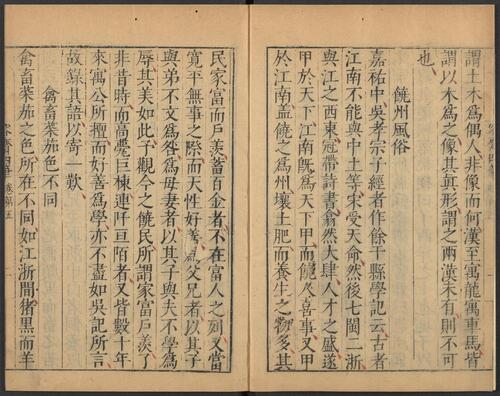 謂土木爲偶人非像而何漢至寓龍寓車馬皆
謂以木爲之像其眞形謂之兩漢未有則不可
也
饒州風俗
嘉祐中吳孝宗子經者作餘干縣學記云古者
江南不能與中土等宋受天命然後七閩二浙
與江之西東冠帶詩書翕然大肆人才之盛遂
甲於天下江南旣爲天下甲而饒人喜事又甲
於江南蓋饒之爲州壤土肥而養生之物多其
民家富而戶羨蓄百金者不在富人之列又當
寛平無事之際而天性好善爲父兄者以其子
與弟不文爲咎爲母妻者以其子與夫不學爲
辱其美如此予觀今之饒民所謂家富戶羨了
非昔時而高甍巨棟連阡亘陌者又皆數十年
來寓公所擅而好善爲學亦不盡如吳記所言
故錄其語以寄一歎
禽畜菜茄色不同
禽畜菜茄之色所在不同如江浙間猪黑而羊